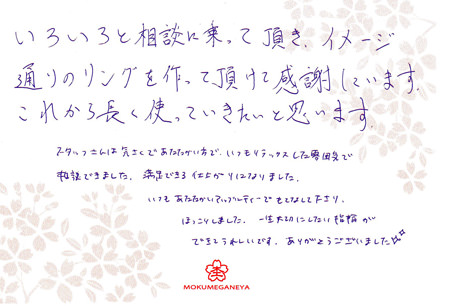 いろいろと相談に乗って頂き、イメージ
通りのリングを作って頂けて感謝しています。
これから長く使っていきたいと思います。
スタッフさんは気さくであたたかい方で、いつもリラックスした雰囲気で
相談できました。満足できる仕上がりになりました。
いつもあたたかいアップルティーでもてなして下さり、
ほっこりしました。一生大切にしたい指輪が
できてうれしいです。ありがとうございました
MOKUMEGANEYA